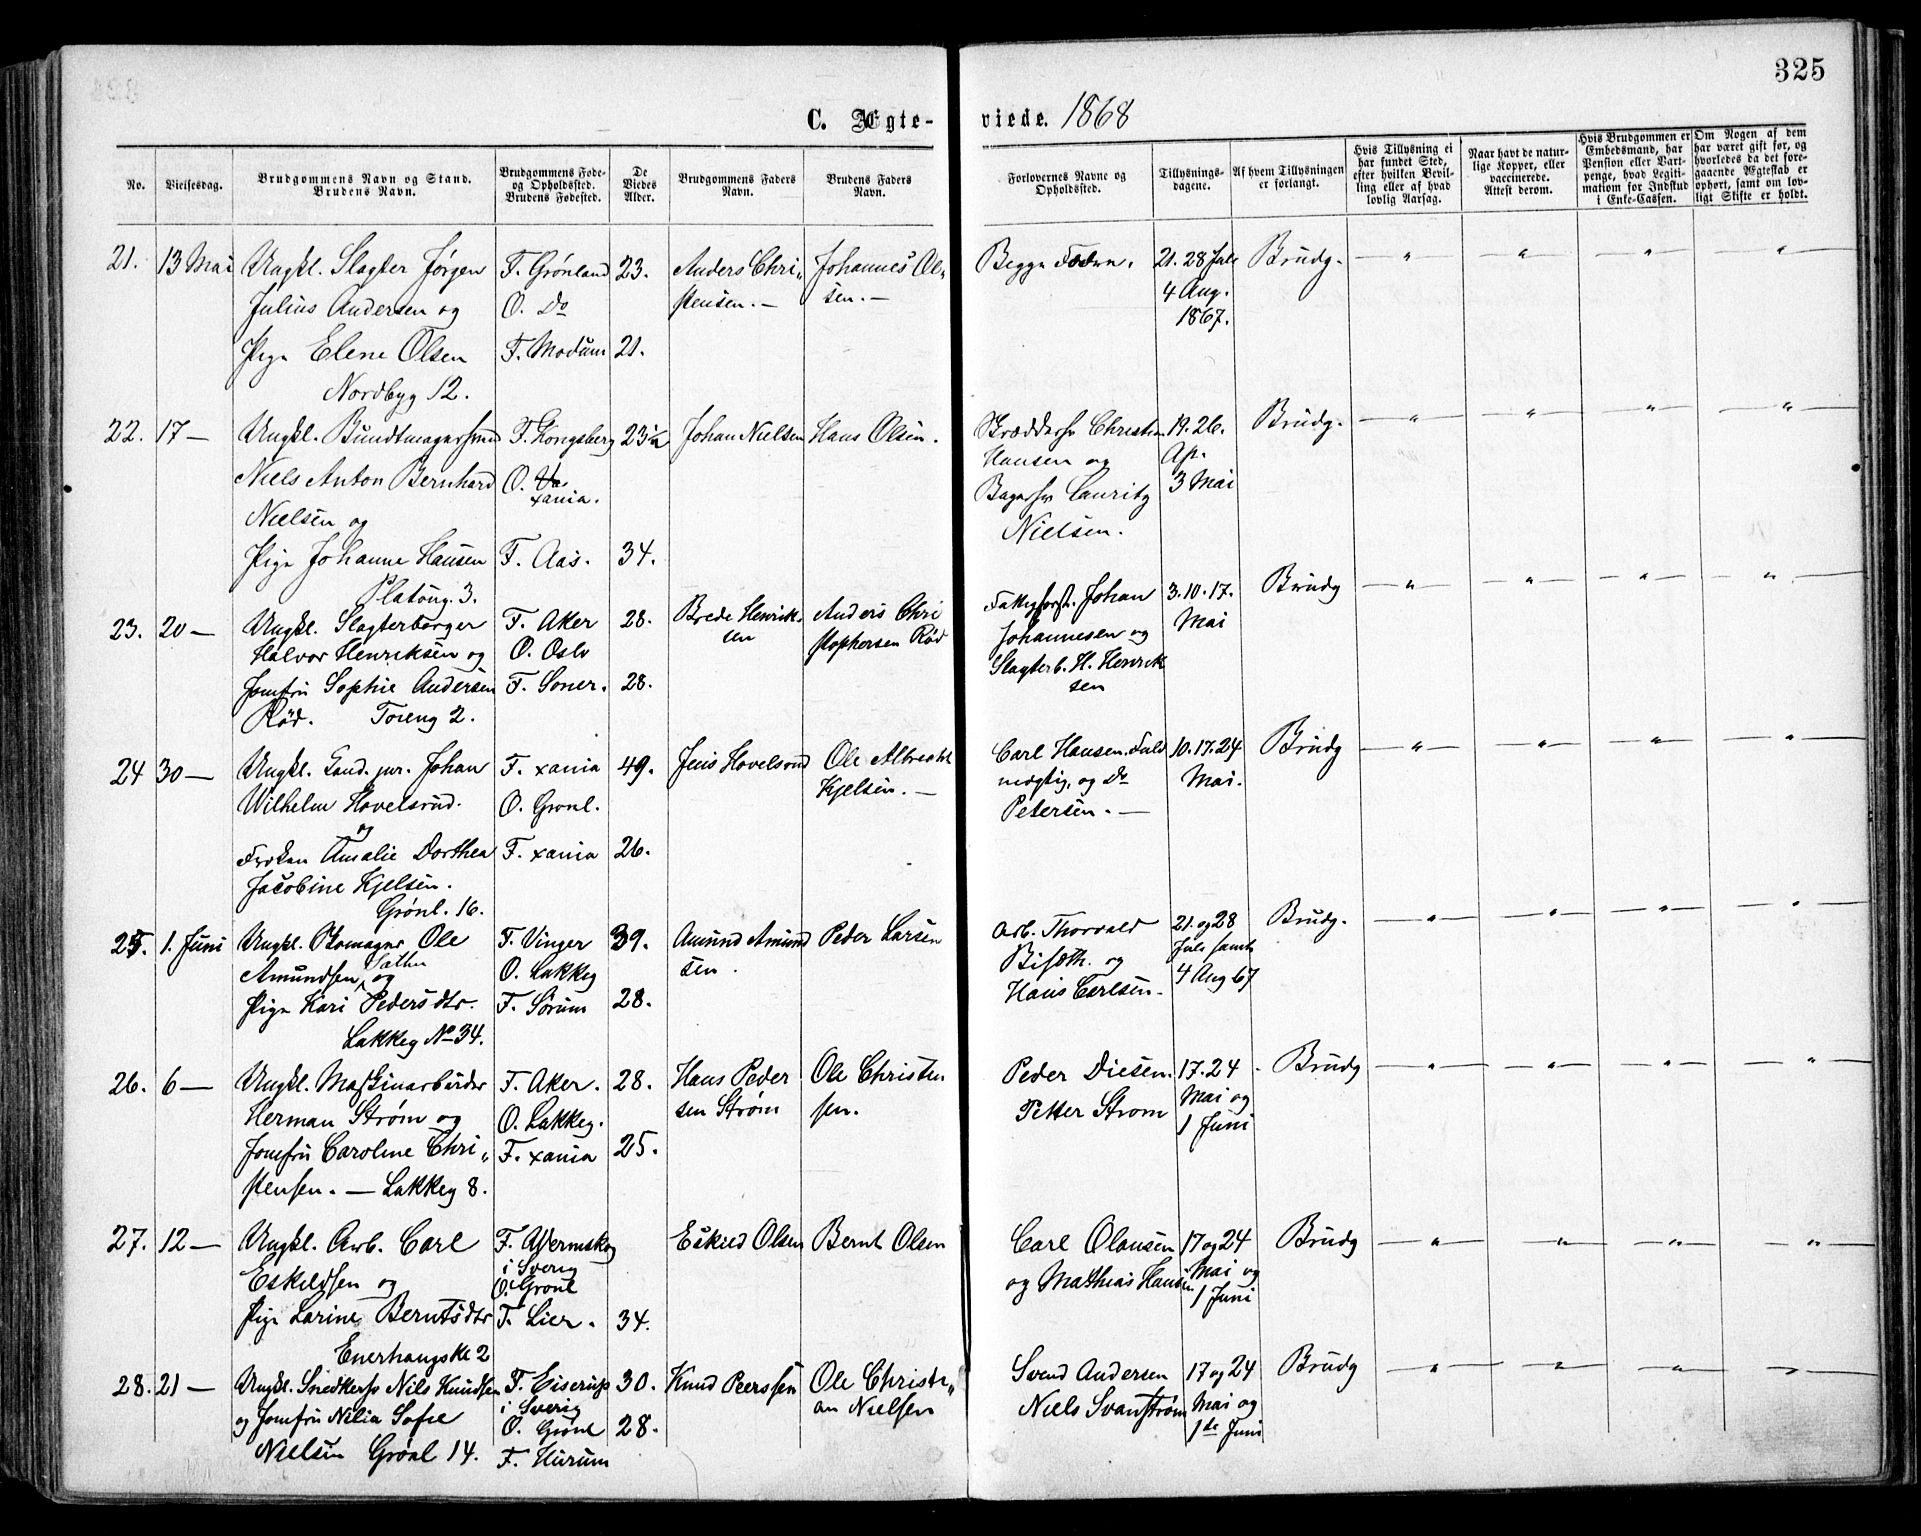 325
C. Ægte-
viede. 1868
No.
Vielsesdag.
Brudgommens Navn og Stand.
Brudens Navn.
Brudgommens Føde-
og Opholdssted.
Brudens Fødested.
De
Viedes
Alder.
Brudgommens Faders
Navn.
Brudens Faders
Navn.
Forlovernes Navne og
Opholdssted.
Tillysnings-
dagene.
Af hvem Tillysningen
er forlangt.
Hvis Tillysning ei
har fundet Sted,
efter hvilken Bevil-
ling eller af hvad
lovlig Aarsag.
Naar havt de natur-
lige Kopper, eller
vaccinerede.
Attest derom.
Hvis Brudgommen er
Embedsmand, har
Pension eller Vart-
penge, hvad Legiti-
mation for Indskud
i Enke-Cassen.
Om Nogen af dem
har været gift før, og
hvorledes da det fore-
gaaende Ægteskab er
ophørt, samt om lov-
ligt Skifte er holdt.
21.
13 Mai
Ungkl. Slagter Jørgen
Julius Andersen og
Pige Elene Olsen
Nordbyg 12.
F. Grønland
O. Do
F. Modum
23.
21.
Anders Chri„
stensen. —
Johannes Ol„
sen. —
Begge Fædre.
21. 28 Juli
4 Aug.
1867.
Brudg.
— „ — — „ — — „ — — „ —
22.
17 —
Ungkl. Bundtmagersvend
Niels Anton Bernhard
Nielsen og
Pige Johanne Hansen
Platoug. 3.
F. Kongsberg
O.
xania.
F. Aas.
23 1/2
34.
Johan Nielsen
Hans Olsen.
Skræddersv Christian
Hansen og
Bagersv Lauritz
Nielsen.
19. 26.
Ap.
3 Mai
Brudg.
— „ — — „ — — „ — — „ —
23.
20 —
Ungkl. Slagterborger
Halvor Henriksen og
Jomfru Sophie Andersen
Rød. Toieng 2.
F. Aker
O. Oslo
F. Soner.
28.
28.
Brede Henrik-
sen
Anders Chri
stophersen Rød
Johan
Johannesen og
Slagterb. H. Henrik
sen
3. 10. 17.
Mai
Brudg
— „ — — „ — — „ — — „ —
24
30 —
Ungkl. Cand. jur. Johan
Wilhelm Hovelsrud.
og
Frøken Amalie Dorthea
Jacobine Kjelsen.
Grønl. 16.
F. xania
O. Grønl.
F. xania
49.
26.
Jens Hovelsrud
Ole Albrecht
Kjelsen. —
Carl Hansen. Fuld
mægtig, og Do
Petersen. —
10. 17. 24
Mai.
Brudg
— „ — — „ — — „ — — „ —
25.
1. Juni
Ungkl. Skomager Ole
Amundsen Sæther og
Pige Kari Pedersdtr.
Lakkeg No 34.
F. Vinger
O. Lakkeg
F. Sørum
39.
28.
Amund Amund
sen.
Peder Larsen
Arb. Thorvald
Biseth. og
Hans Carlsen.
21. og 28
Juli samt
4 Aug 67
Brudg.
— „ — — „ — — „ — — „ —
26.
6 —
Ungkl. Maskinarbeider
Herman Strøm og
Jomfru Caroline Chri„
stensen. — Lakkeg 8.
F. Aker.
O. Lakkeg.
F. xania
28.
25.
Hans Peder
sen Strøm
Ole Christen
sen.
Peder Diesen.
Petter Strøm
17. 24
Mai og
1 Juni
Brudg
— „ — — „ — — „ — — „ —
27.
12 —
Ungkl. Arb. Carl
Eskildsen og
Pige Larine Berntsdtr
Enerhaugsk 2
F. Wermskog
i Sverig
O. Grønl
F. Lier.
34.
Eskild Olsen
Bernt Olsen
Carl Olausen
og Mathias Hansen
17 og 24
Mai og
1 Juni
Brudg
— „ — — „ — — „ — — „ —
28.
21 —
Ungkl. Snedkersv Nils Knudsen
og Jomfru Nilia Sofie
Nielsen Grønl 14.
F. Eiserup
i Sverig
O. Grønl
F. Hurum
30.
28.
Knud Peerssen
Ole Christi„
an Nielsen
Svend Andersen
Niels Svanstrøm
17 og 24
Mai og
1ste Juni
Brudg
— „ — — „ — — „ — — „ —